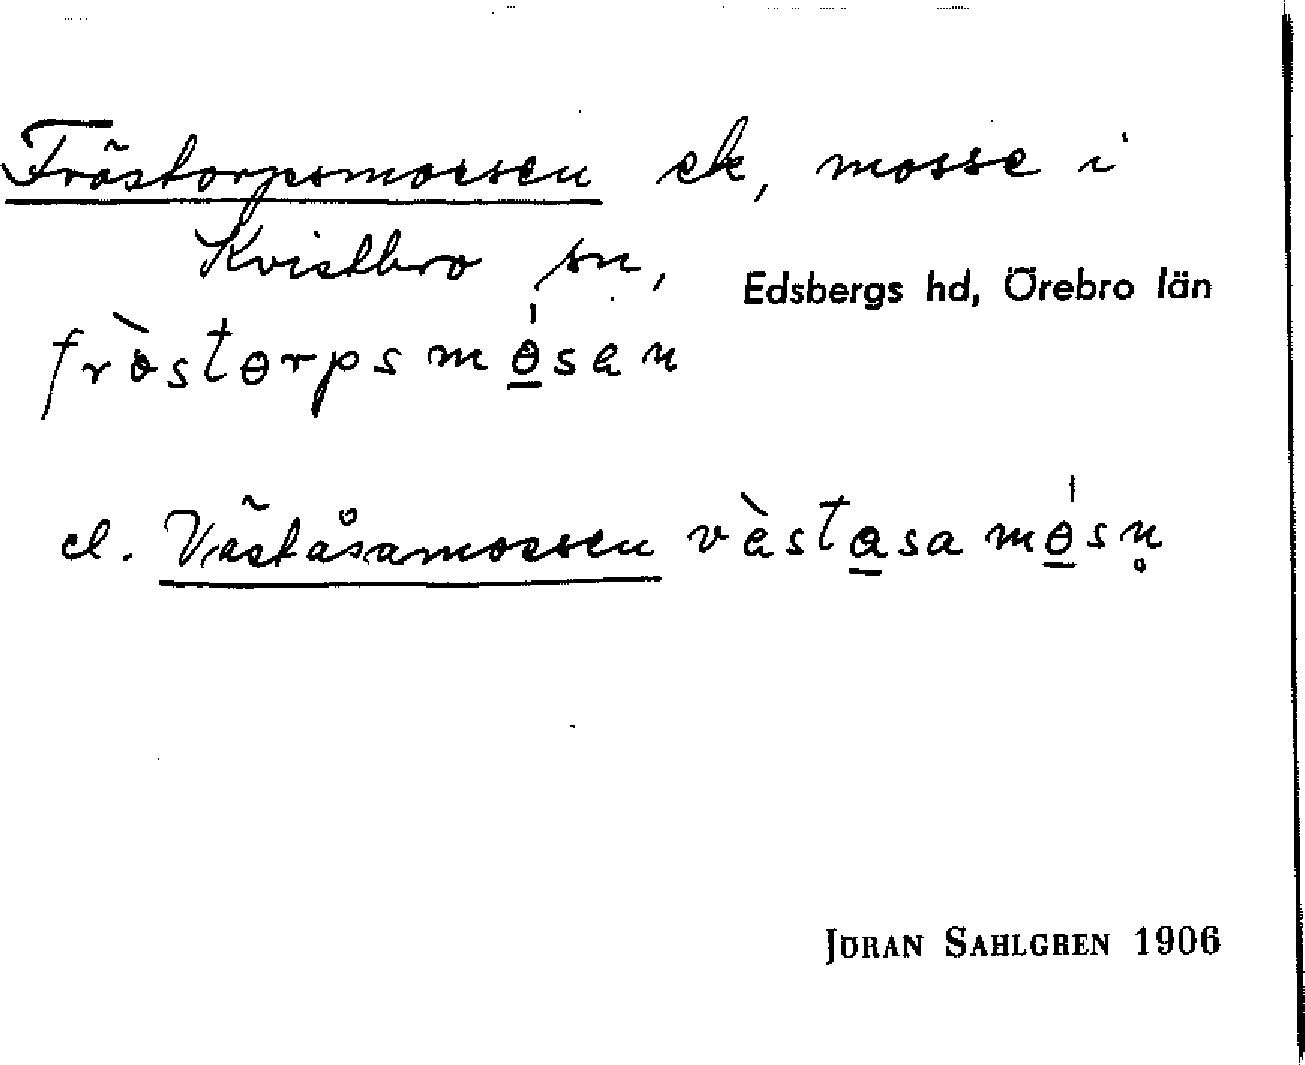 Fröstorpsmossen ek, mosse i
Kvistbro sn, Edsbergs hd, Örebro län
frɵ̀storpsmɵ́san
el. Väståsamossen vὰstasamɵ́sn̥
JÖRAN SAHLGREN 1906